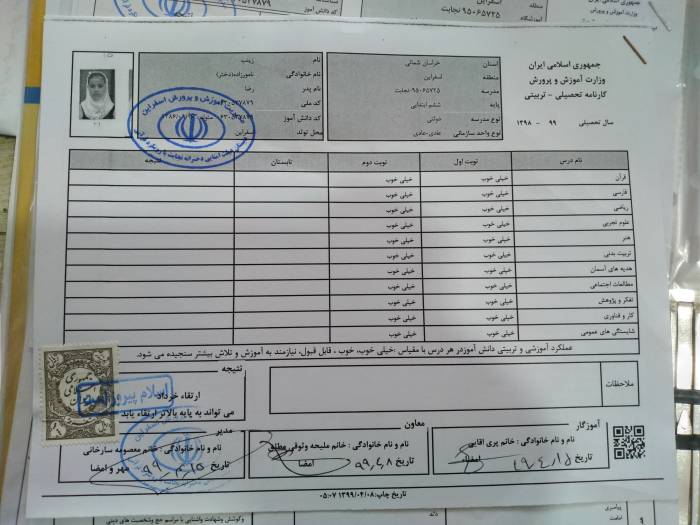 جمهوری اسلامی ایران
وزارت آموزش و پرورش
کارنامه تحصیلی - تربیتی
سال تحصیلی ۹۹ - ۱۳۹۸
استان خراسان شمالی
منطقه اسفراین
مدرسه ۹۵۰۶۵۷۲۵-نجابت
پایه ششم ابتدایی
نوع مدرسه دولتی
نوع واحد سازمانی عادی-عادی
نام زینب
نام خانوادگی
نام پدر رضا
کد ملی
کد دانش آموز
محل تولد اسفراین
مدیریت آموزش و پرورش اسفراین
نام درس نوبت اول نوبت دوم تابستان نتیجه
قرآن خیلی خوب خیلی خوب
فارسی خیلی خوب خیلی خوب
ریاضی خیلی خوب خیلی خوب
علوم تجربی خیلی خوب خیلی خوب
هنر خیلی خوب خیلی خوب
تربیت بدنی خیلی خوب خیلی خوب
هدیه های آسمان خیلی خوب خیلی خوب
مطالعات اجتماعی خیلی خوب خیلی خوب
تفکر و پژوهش خیلی خوب خیلی خوب
کار و فناوری خیلی خوب خیلی خوب
شایستگی های عمومی خیلی خوب خیلی خوب
عملکرد آموزشی و تربیتی دانش آموزدر هر درس با مقیاس :خیلی خوب، خوب ، قابل قبول، نیازمند به آموزش و تلاش بیشتر سنجیده می شود.
ملاحظات
نتیجه
ارتقاء خرداد
می تواند به پایه بالاتر ارتقاء یابد
اسلام پیروز است
آموزگار
نام و نام خانوادگی : خانم پری اقایی
تاریخ امضاء
معاون
نام و نام خانوادگی : خانم ملیحه وثوقی مطلق
تاریخ ۹۹,۴,۸ امضا
مدیر
نام و نام خانوادگی : خانم معصومه سارخانی
تاریخ مهر و امضا
تاریخ چاپ:۱۳۹۹/۰۴/۰۸ ۰۵:۰۷